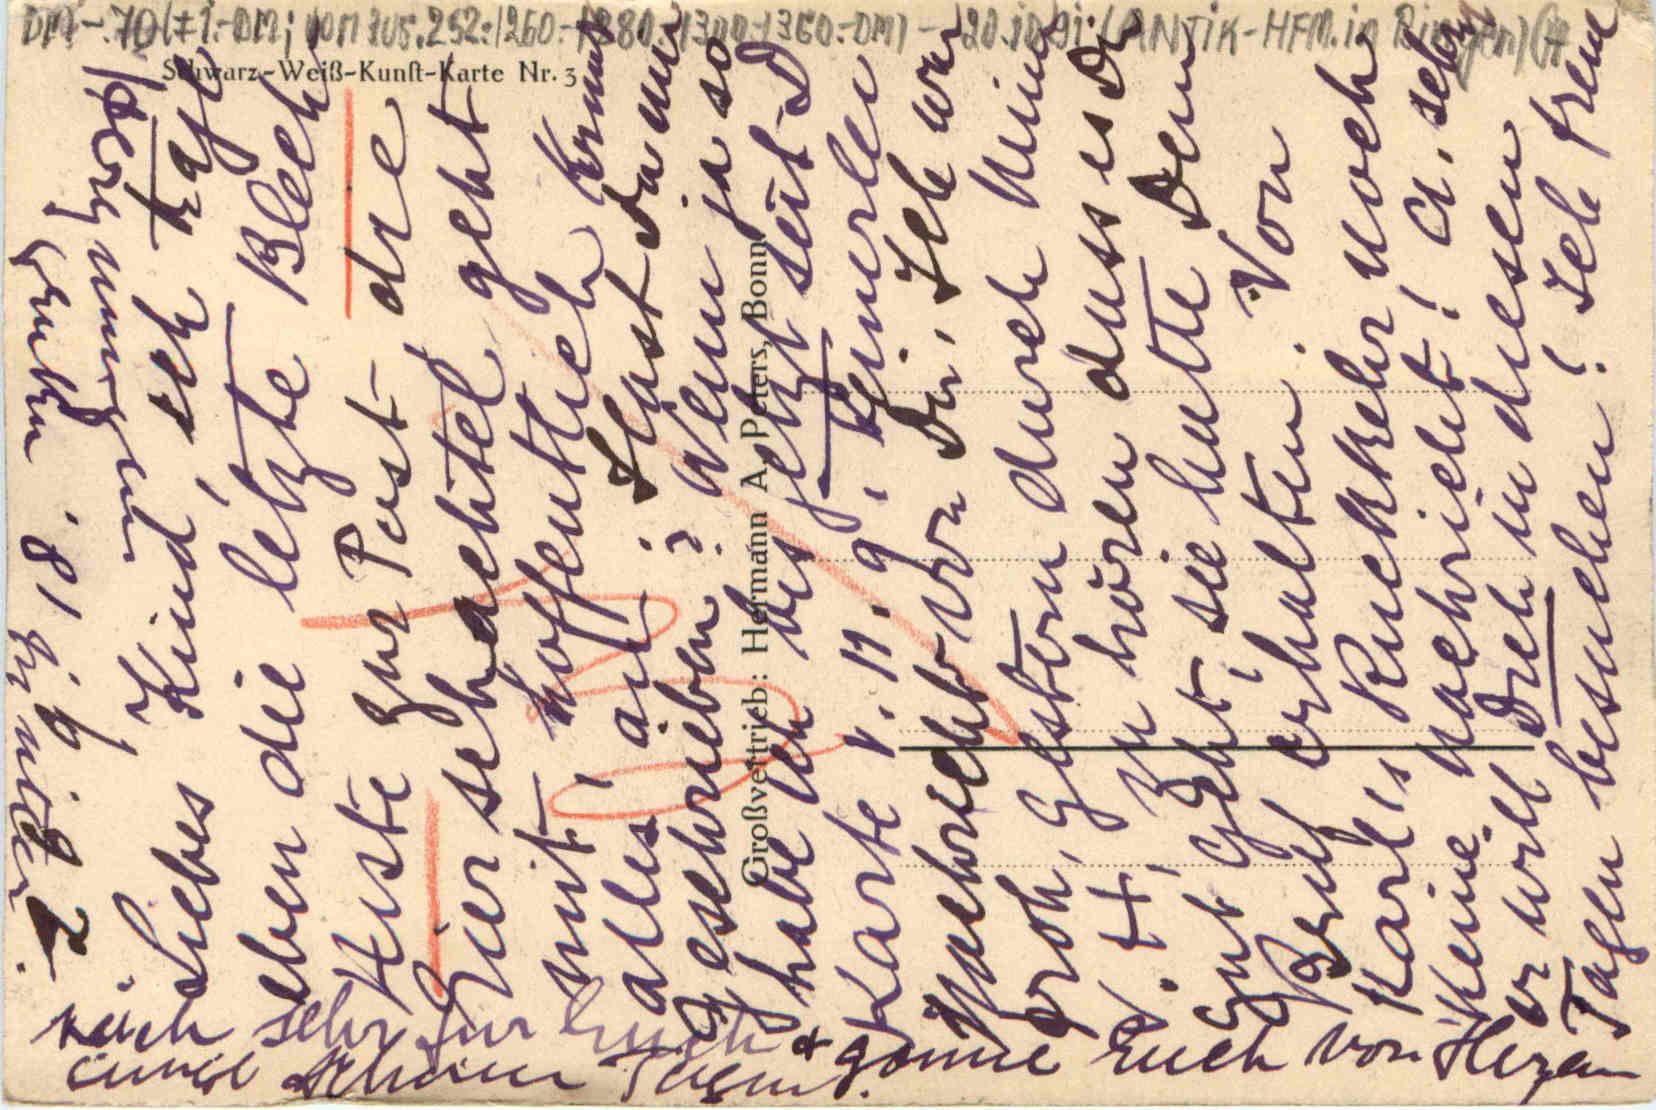 DM -.70 (+1.-DM; von zus. 252:/260.-/380.-/300.-/360.-DM) - 20.10.91: (ANTIK-HFM. in Bingen) (#
Schwarz-Weiß-Kunst-Karte Nr. 3
Großvertrieb: Hermann A. Peters, Bonn
18. 9.
Liebes Kind, ich
eben die letzte Blech
Kiste zur Post die
Eierschachtel geht
mit, hoffentlich kommt
alles an. Hast Du mir
geschrieben? Wenn ja so
habe von bis jetzt seit D
Karte v. 11. 9. keinerlei
Nachricht von Dir. Ich war
froh, gestern durch Minna
V. H. zu hören dass es Dir
gut geht, sie hatte Dein
Brief erhalten. Von
Karl's Rückkehr noch
keine Nachricht!
er will Dich in diesen
Tagen besuchen! Ich freue
mich sehr für Euch & gönne Euch von Herzen
einige schöne Tage.